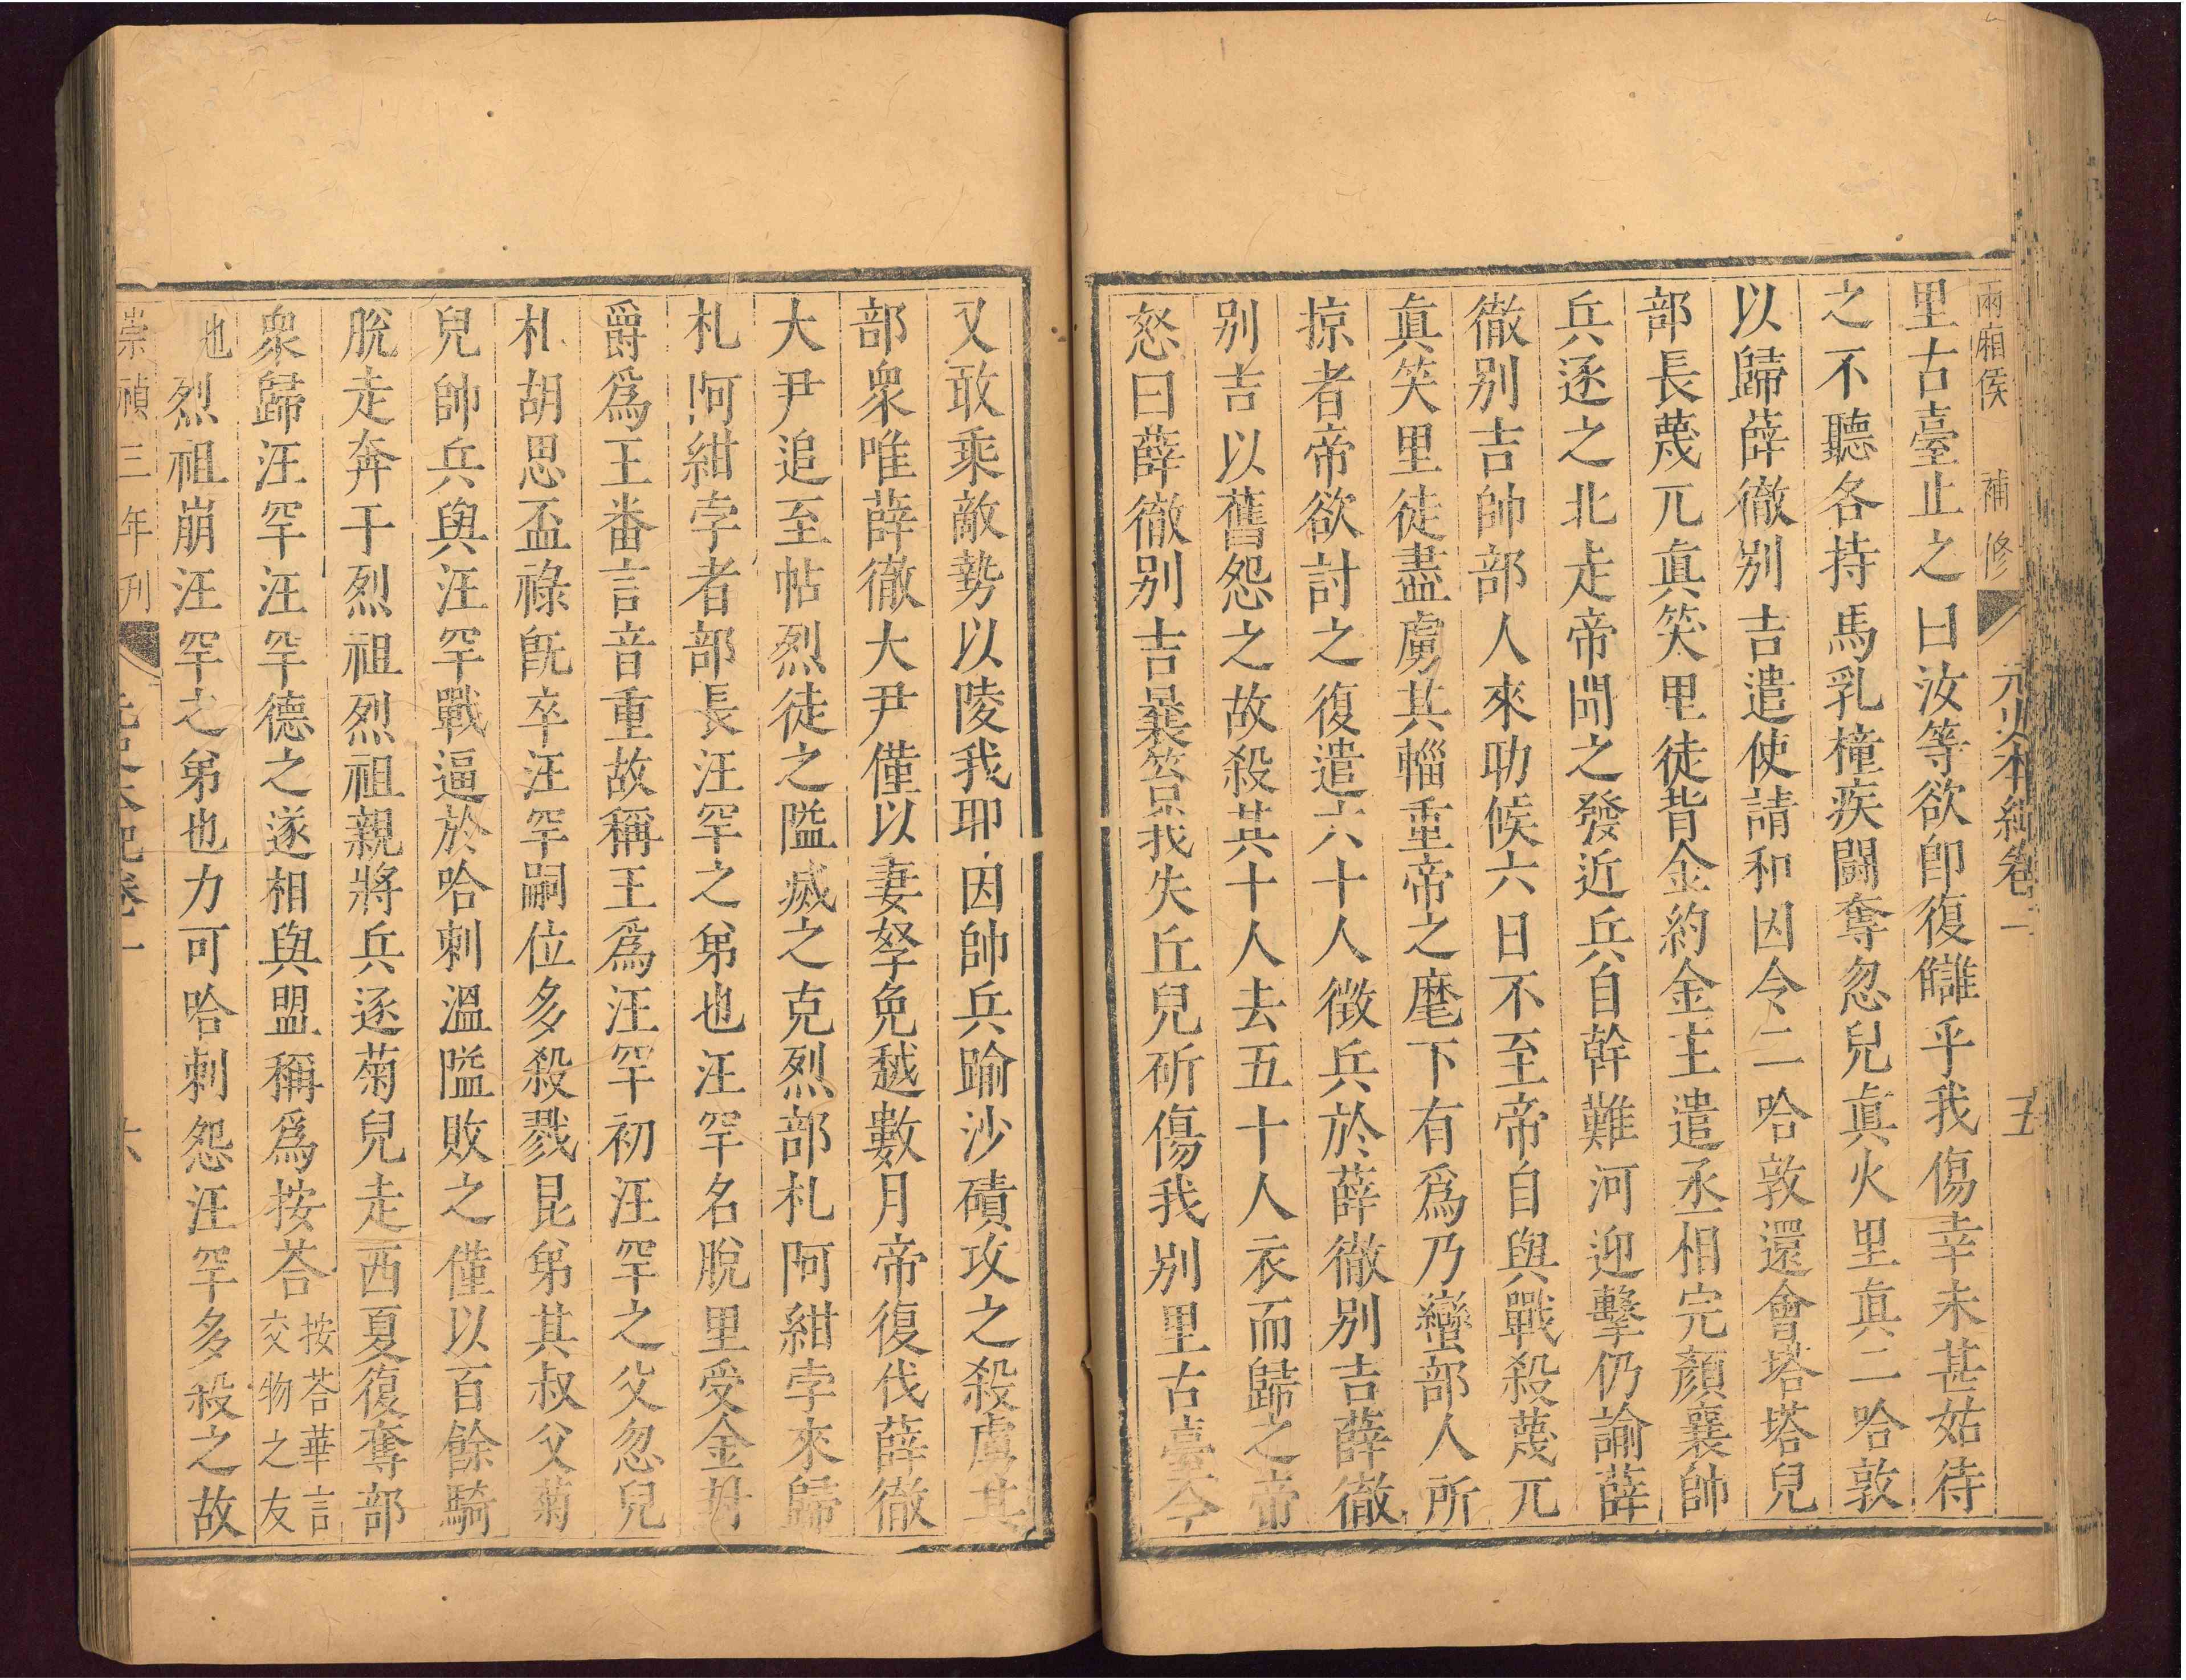 兩廂侯　補修　元史本紀卷一　五
里古臺止之曰汝等欲即復讎乎我傷幸未甚姑待
之不聽各持馬乳橦疾鬬奪忽兒真火里真二哈敦
以歸薛徹別吉遣使請和因令二哈敦還會塔塔兒
部長蔑兀真笑里徒背金約金主遣丞相完顏襄帥
兵逐之北走帝聞之發近兵自幹難河迎擊仍諭薛
徹別吉帥部人來助候六日不至帝自與戰殺蔑兀
真笑里徒盡虜其輜重帝之麾下有爲乃蠻部人所
掠者帝欲討之復遣六十人徵兵於薛徹別吉薛徹
別吉以舊怨之故殺其十人去五十人衣而歸之帝
怒曰薛徹別吉曩笞我失丘兒斫傷我別里古臺今
又敢乘敵勢以陵我耶因帥兵踰沙磧攻之殺虜其
部衆唯薛徹大尹僅以妻孥免越數月帝復伐薛徹
大尹追至帖烈徒之隘滅之克烈部札阿紺孛來歸
札阿紺孛者部長汪罕之弟也汪罕名脫里受金封
爵爲王番言音重故稱王爲汪罕初汪罕之父忽兒
札胡思盃祿旣卒汪罕嗣位多殺戮昆弟其叔父菊
兒帥兵與汪罕戰逼於哈剌溫隘敗之僅以百餘騎
脫走奔于烈祖烈祖親將兵逐菊兒走西夏復奪部
衆歸汪罕汪罕德之遂相與盟稱爲按荅按荅華言
交物之友
也烈祖崩汪罕之弟也力可哈剌怨汪罕多殺之故
崇禎三年刊　元史本紀卷一　六